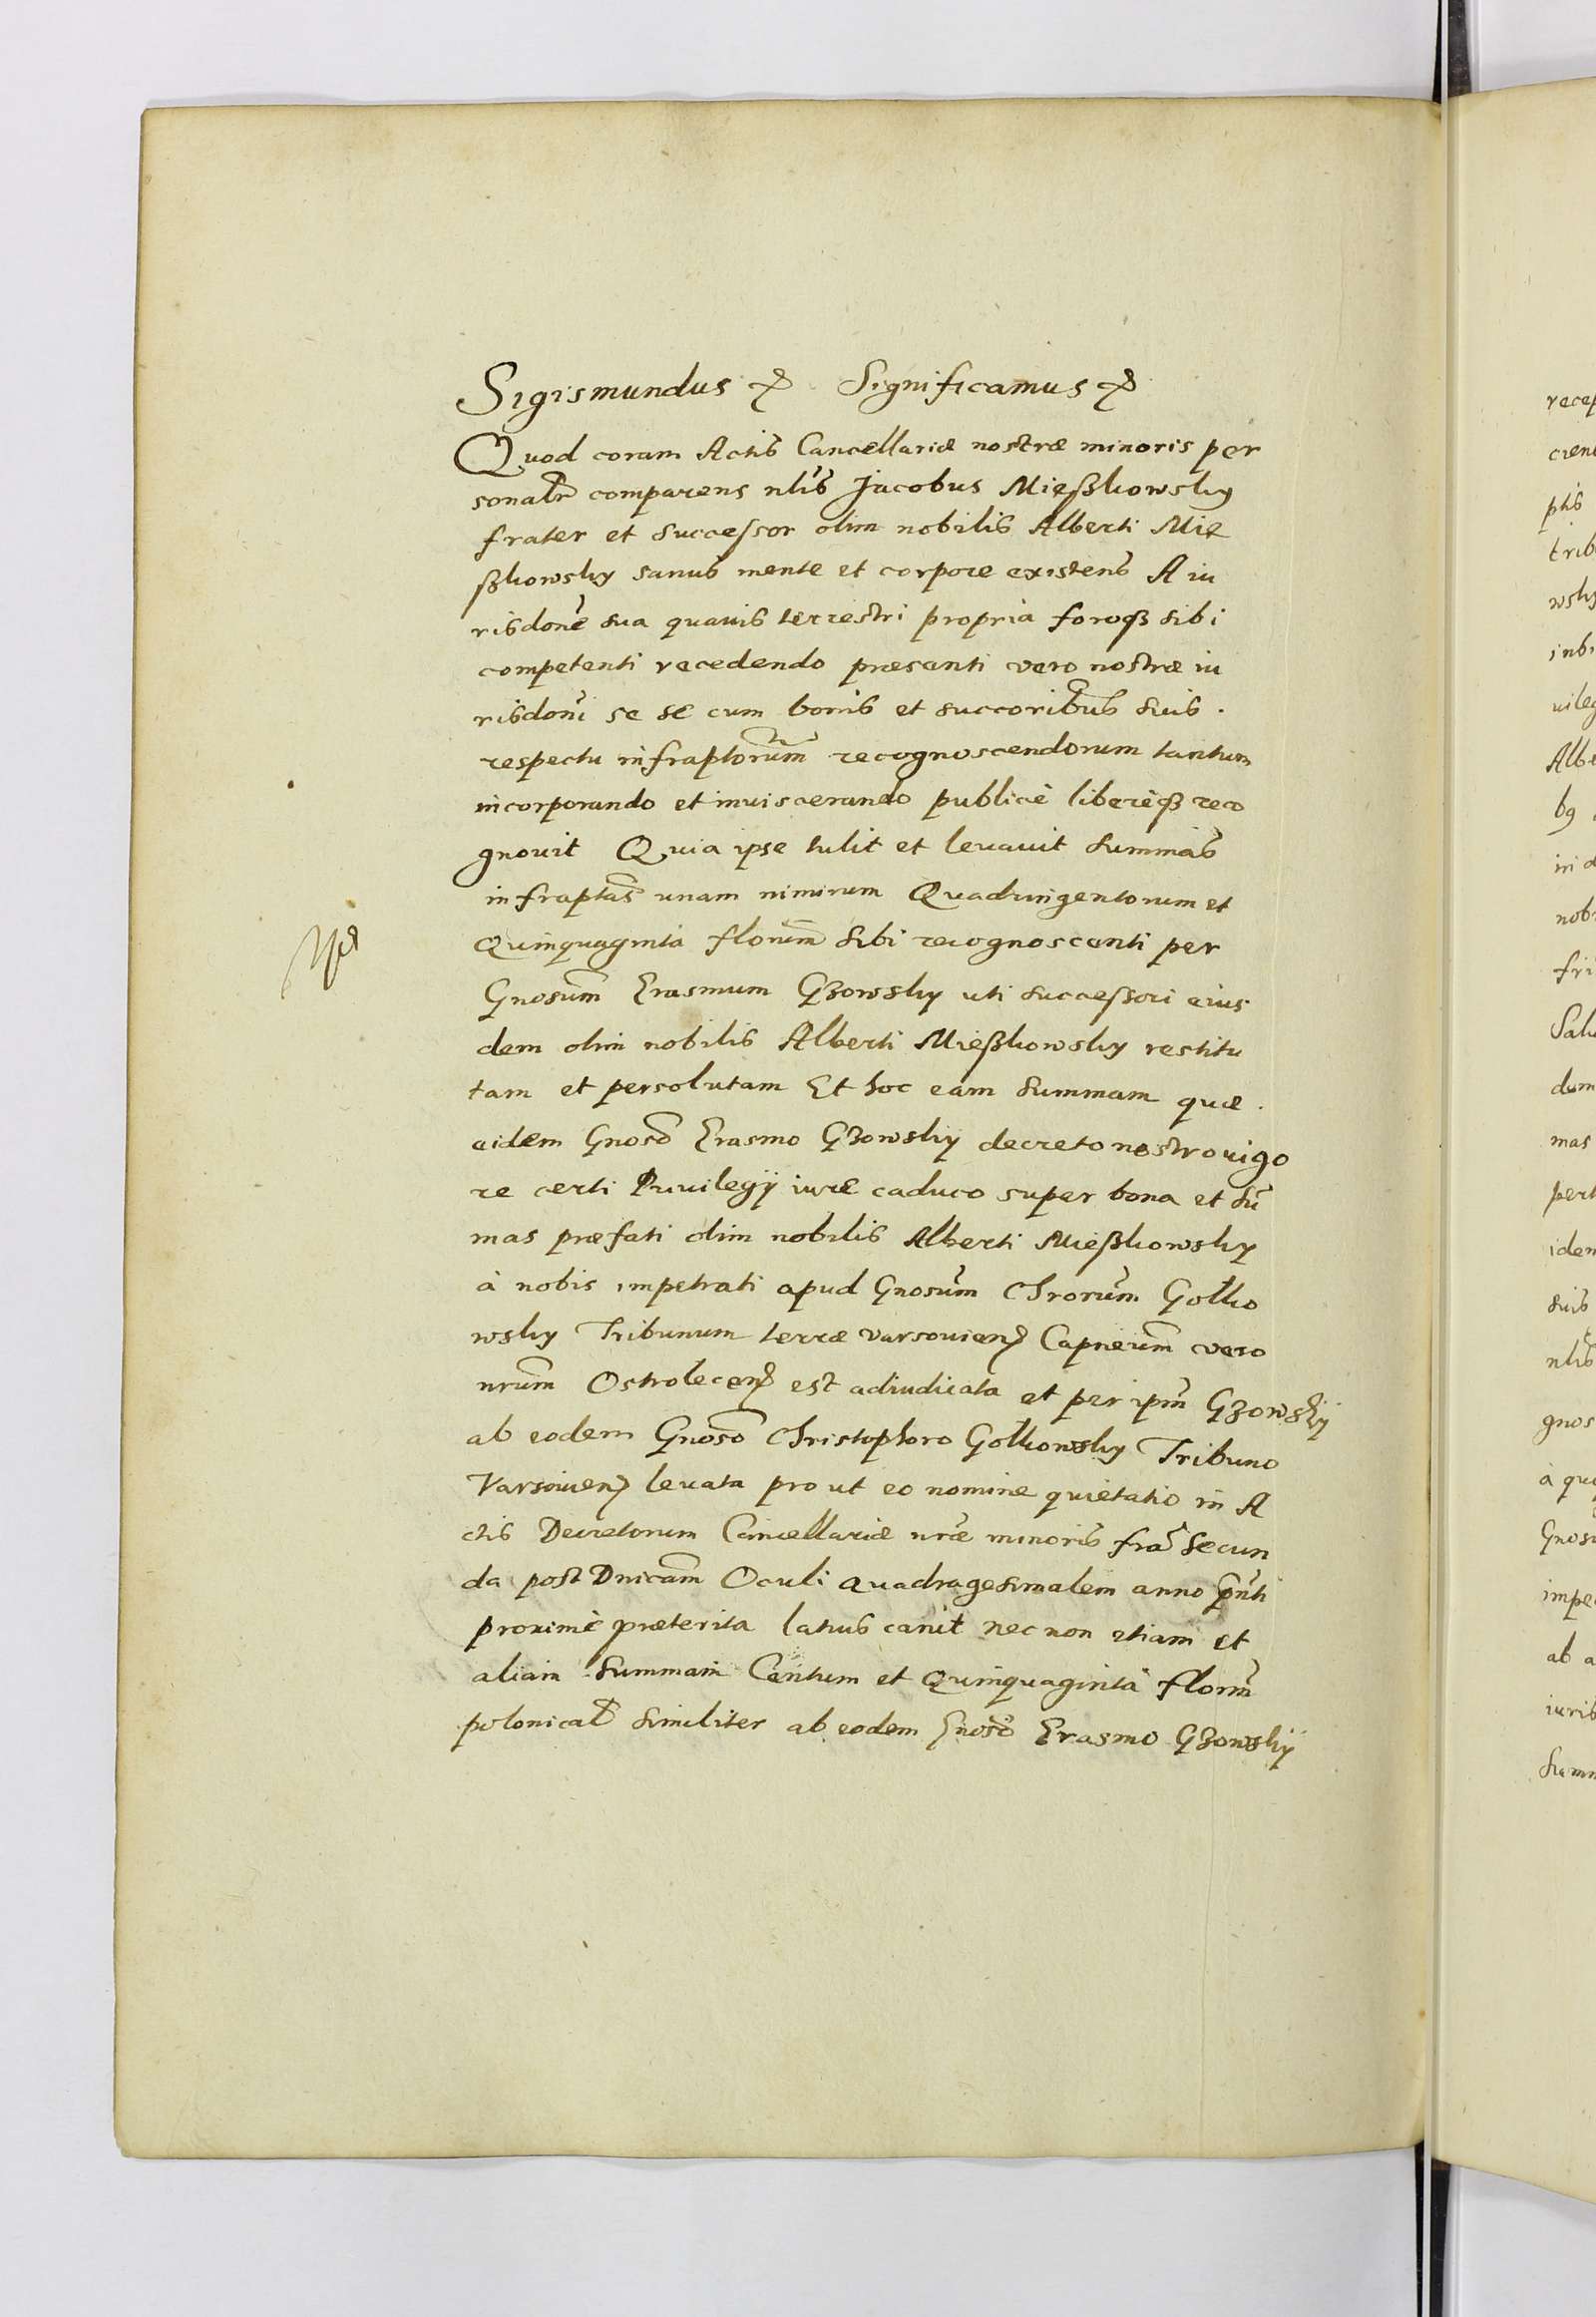 Sigismundus etc Significamus etc
Quod coram Actis Cancellariæ nostræ minoris per
sonalr comparens nlis Jacobus Mießkowsky
frater et successor olim nobilis Alberti Mie
ßkowsky sanus mente et corpore existens A iu
risdone sua quavis terrestri propria foroqȝ sibi
competenti recedendo præsenti vero nostræ iu
risdoni se se cum bonis et succoribus suis.
respectu infraptorum recognoscendorum tantum
incorporando et inviscerando publicè liberèqȝ reco
gnovit Quia ipse tulit et levavit summas
infraptas unam nimirum Quadringentorum et
Quinquaginta florum sibi recognoscenti per
Gnosum Erasmum Gzowsky uti successori eius
dem olim nobilis Alberti Mießkowsky restitu
tam et persolutam Et hoc eam summam quæ.
eidem Gnoso Erasmo Gzowsky decreto nostro vigo
re certi Privilegÿ iure caduco super bona et sũ
mas præfati olim nobilis Alberti Mießkowsky
à nobis impetrati apud Gnosum Chrorum Gotko
wsky Tribunum terræ varsovien Capneum vero
nrum Ostrolecen est adiudicata et per ipm Gzowsky
ab eodem Gnoso Christophoro Gotkowsky Tribuno
Varsovien levata prout eo nomine quietatio in A
ctis Decretorum Cancellariæ nræ minoris fra Secun
da post Dnicam Oculi Quadragesimalem anno pnti
proximè præterita latius canit nec non etiam et
aliam summam Centum et Quinquaginta florum
polonical similiter ab eodem Gnoso Erasmo Gzowsky